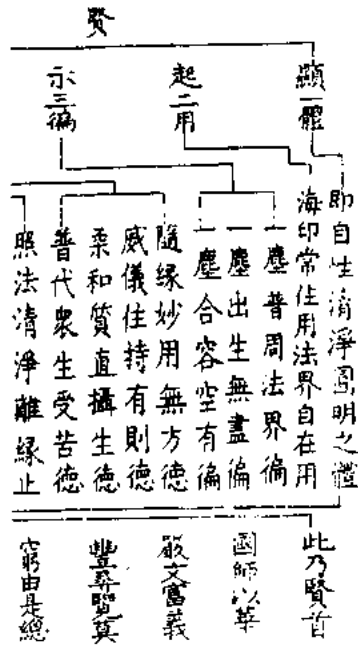 賢
顯一體
起二用
示三徧
即自性清淨圓明之體
海印常住用法界自在用
一塵普周法界徧
一塵出生無盡徧
一塵合容空有徧
隨緣妙用無方德
威儀住持有則德
柔和質直攝生德
普代衆生受苦德
照法清淨離緣止
此乃賢首
國師以華
嚴文富義
豐尋覽莫
窮由是總